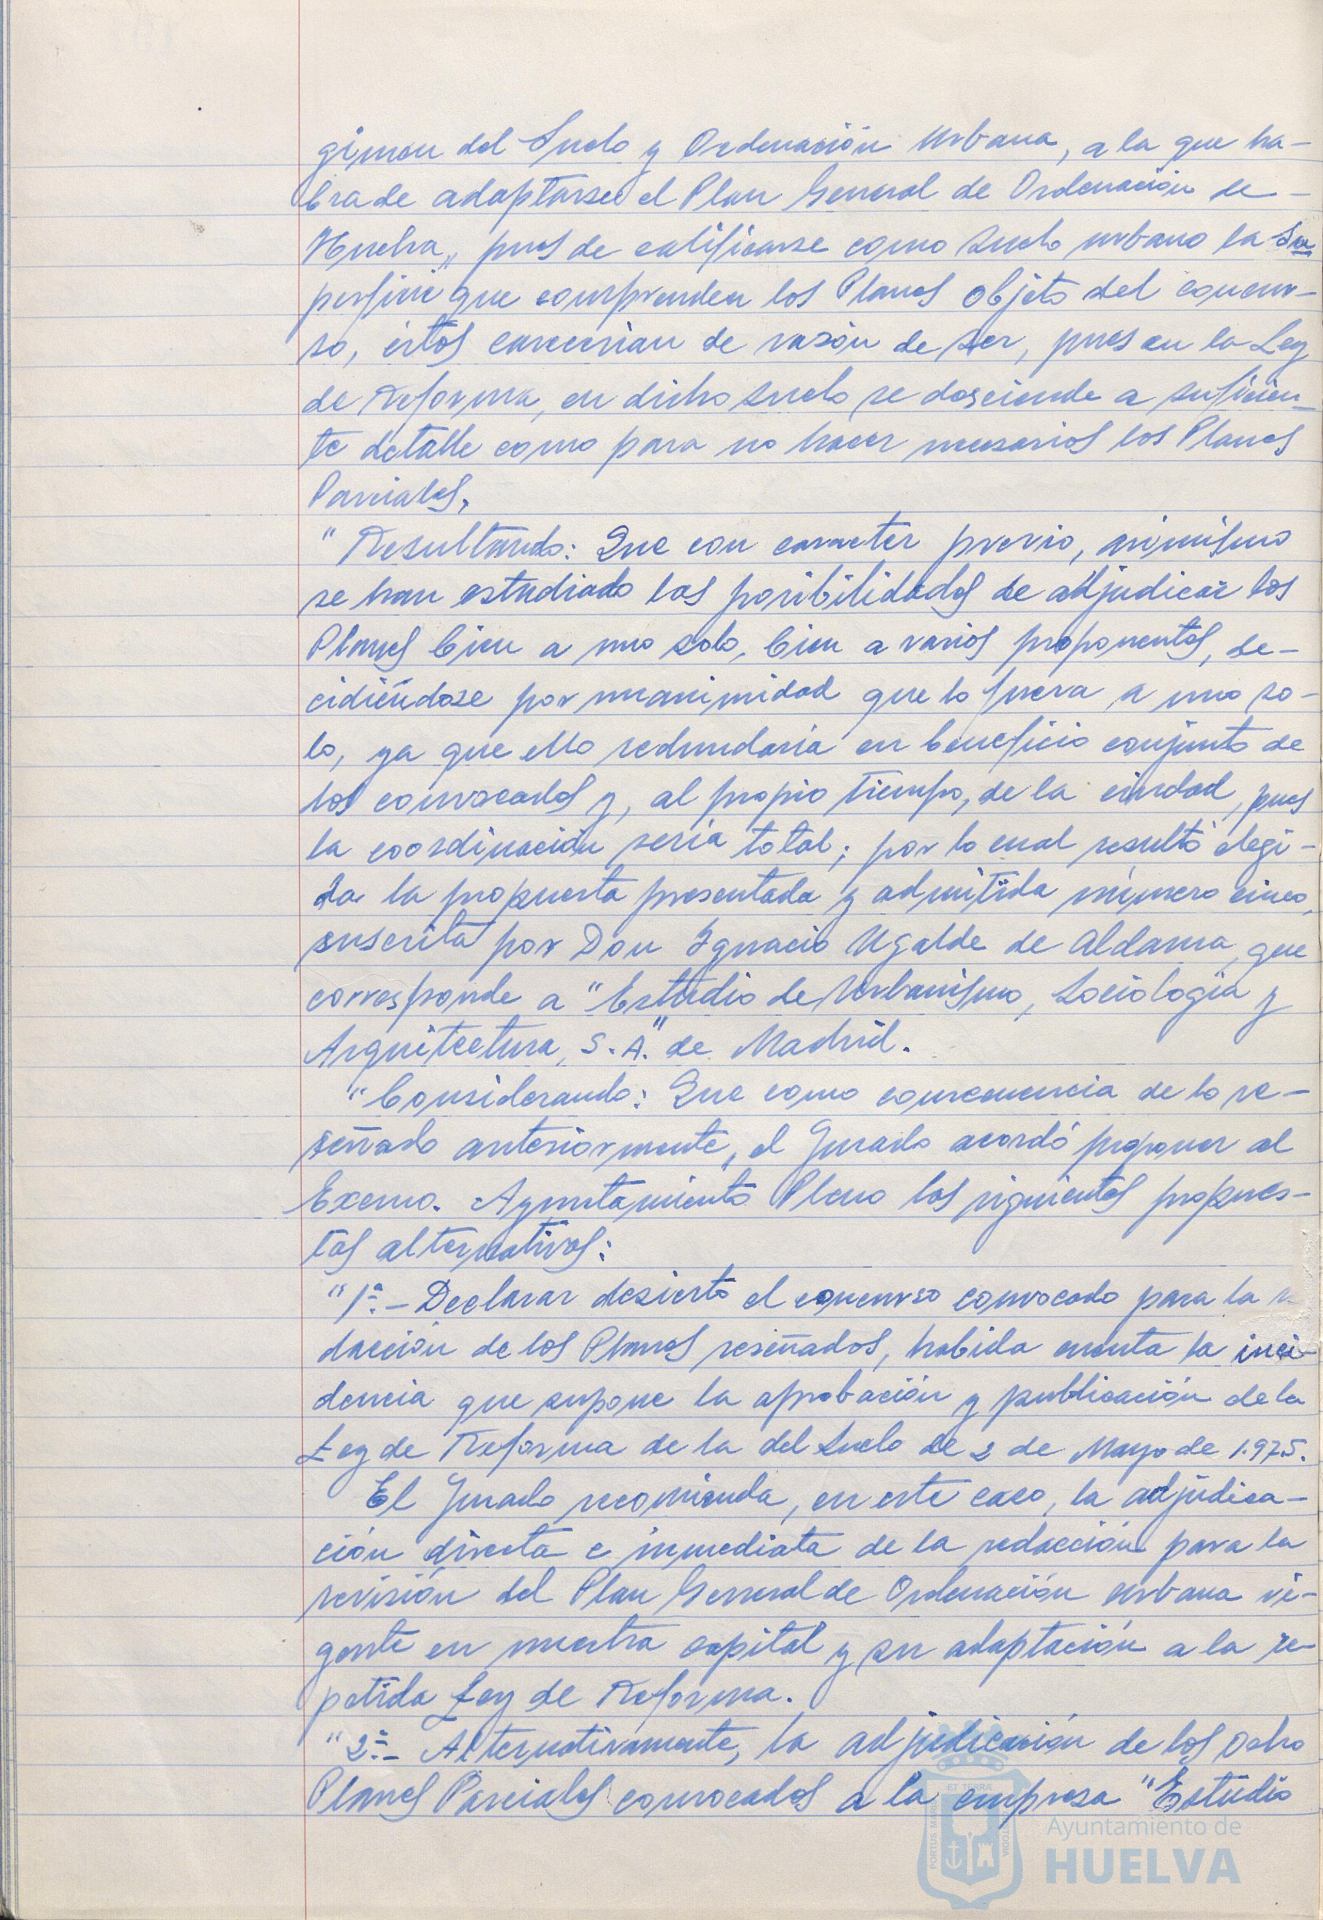 gimen del Suelo y Ordenación Urbana, a la que ha-
bra de adaptarse el Plan General de Ordenación de
Huelva", pues de calificarse como suelo urbano la Su
perficie que comprenden los Planes objeto del concur-
so, éstos carecerian de razón de ser, pues en la Ley
de Reforma, en dicho suelo se desciende a suficien-
te detalle como para no hacer necesarios los Planes
Parciales.
"Resultando: Que con caracter previo, asimismo
se han estudiado las posibilidades de adjudicar los
Planes bien a uno solo, bien a varios proponentes, de-
cidiéndose por unanimidad que lo fuera a uno so-
lo, ya que ello redundaria en beneficio conjunto de
los convocados y, al propio tiempo, de la ciudad, pues
la coordinación seria total; por lo cual resultó elegi-
da la propuesta presentada y admitida número cinco,
suscrita por Don Ignacio Ugalde de Aldama, que
corresponde a "Estudio de Urbanismo, Sociologia y
Arquitectura, S.A." de Madrid.
"Considerando: Que como consecuencia de lo re-
señado anteriormente, el Jurado acordó proponer al
Excmo. Ayuntamiento Pleno las siguientes propues-
tas alternativas:
"1ª.- Declarar desierto el concurso convocado para la
dacción de los Planes reseñados, habida cuenta la inci-
dencia que supone la aprobación y publicación de la
Ley de Reforma de la del Suelo de 2 de Mayo de 1.975.
El Jurado recomienda, en este caso, la adjudica-
ción directa e inmediata de la redacción para la
revisión del Plan General de Ordenación Urbana vi-
gente en nuestra capital y su adaptación a la re-
petida Ley de Reforma.
"2ª.- Alternativamente, la adjudicación de los ocho
Planes Parciales convocados a la empresa "Estudio
ET TERRA
PORTUS MARIS
CUSTODIA
Ayuntamiento de
HUELVA